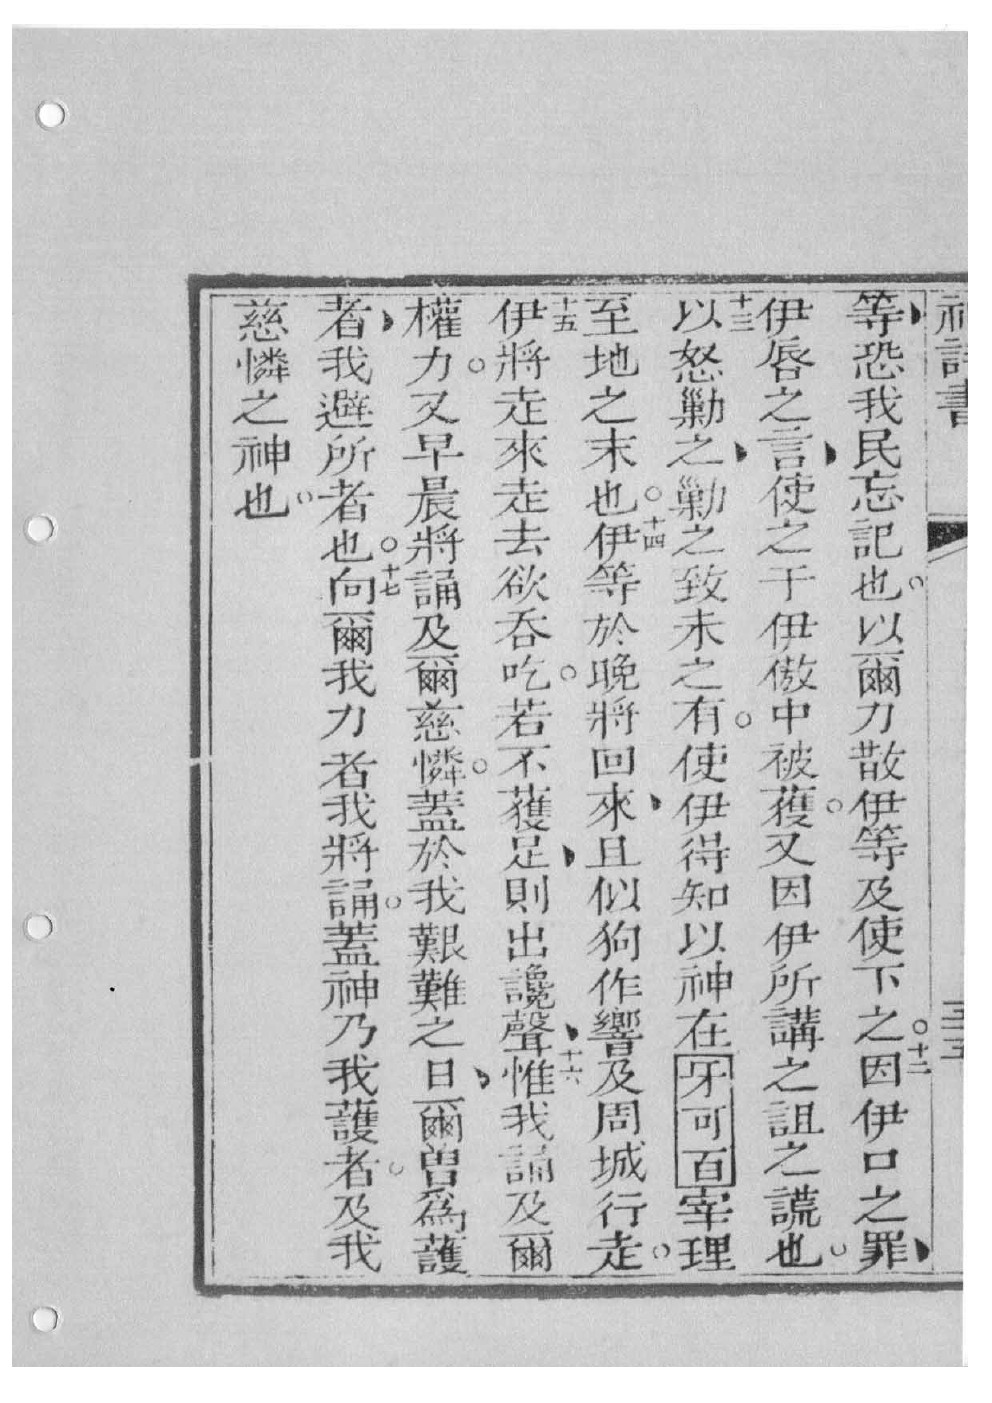 神詩書 三五
等恐我民忘記也。以爾力散伊等及使下之。十二因伊口之罪、
伊唇之言、使之于伊傲中被獲。又因伊所講之詛之謊也。
十三以怒勦之、勦之致未之有。使伊得知以神在牙可百宰理
至地之末也。十四伊等於晚將回來、且似狗作響及周城行走。
十五伊將走來走去欲吞吃。若不獲足、則出讒聲、十六惟我誦及爾
權力。又早晨將誦及爾慈憐。蓋於我艱難之日、爾曾為護
者、我避所者也。十七向爾我力者我將誦。蓋神乃我護者。及我
慈憐之神也。